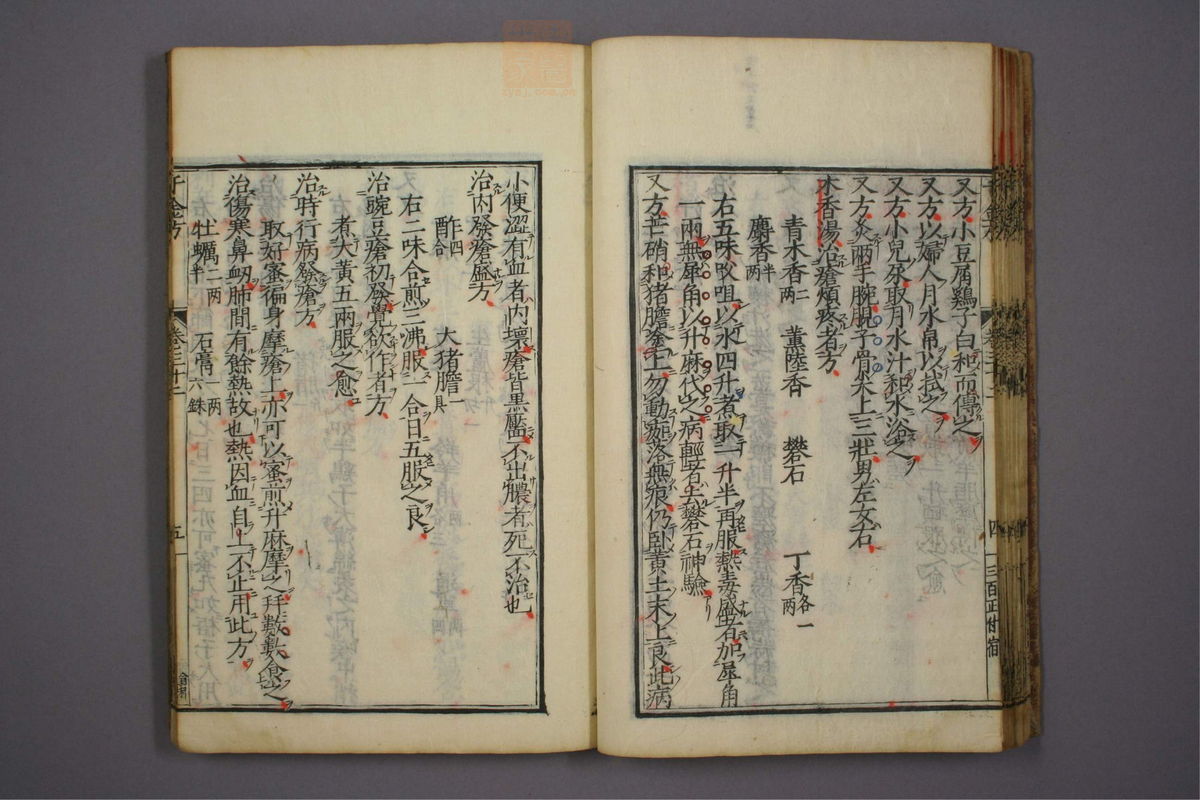 又方小豆屑鷄子白和而傅之
又方以婦人月水帛以拭之
又方小兒取月水汁和水浴之
又方灸兩手腕骨尖上三壯男左女右
木香湯治瘡煩疼者方
青木香二兩 薫陸香 礬石 丁香各一兩
麝香半兩
右五味㕮咀以水四升煮取一升半再服熱毒盛者加犀角
一兩無犀角以升麻代之病輕者去礬石神驗
又方芒硝和猪膽塗上勿動痂落無痕仍臥黄土末上良此病
小便澀有血者内壞瘡皆黒黶不出膿者死不治也
治内發瘡盛方
酢四合 大猪膽一具
右二味合煎三沸服一合日五服之良
治豌豆瘡初發覺欲作者方
煮大黄五兩服之愈
治時行病發瘡方
取好蜜徧身摩瘡上亦可以蜜煎升麻摩之并數數食之
治傷寒鼻衂肺間有餘熱故也熱因血自上不止用此方
牡蠣一兩半 石膏一兩六銖
千金方 卷三十二 五
四